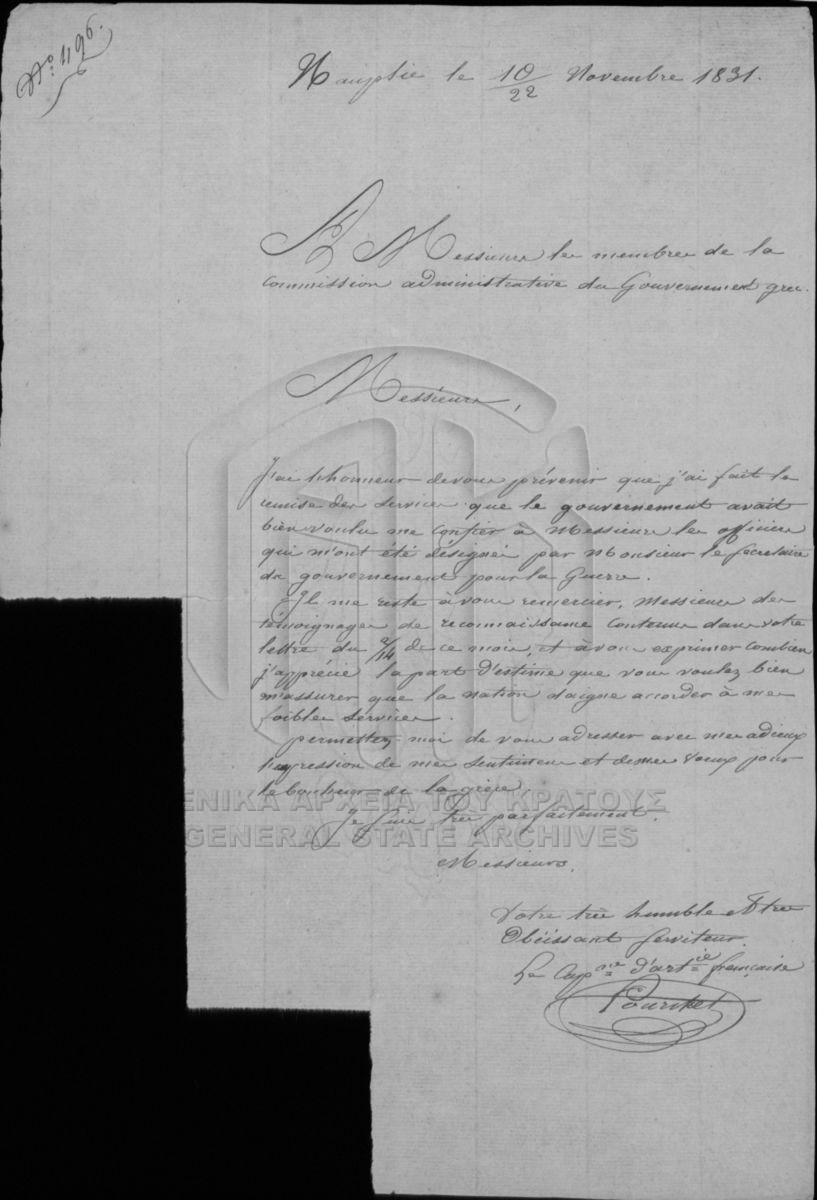 No: 1196.
Nauplie le 10/22 Novembre 1831.
A Messieurs les membres de la
Commission administrative du Gouvernement grec.
Messieurs,
J'ai l'honneur de vous prévenir que j'ai fait la
remise des services que le gouvernement avait
bien voulu me confier à Messieurs les officiers
qui m'ont été désignés par Monsieur le Secrétaire
du gouvernement pour la Guerre.
Il me reste à vous remercier, Messieurs des
témoignages de reconnaissance contenus dans votre
lettre du 2/14 de ce mois, et à vous exprimer combien
j'apprécie la part d'estime que vous voulez bien
m'assurer que la nation daigne accorder à mes
faibles services.
permettez moi de vous adresser avec mes adieux
de mes sentimens et de mes voeux pour
le bonheur de la grèce,
Je suis très parfaitement.
Messieurs,
Votre très humble et très
Obéissant serviteur.
Le Capne d'artie française
ΓΕΝΙΚΑ ΑΡΧΕΙΑ ΤΟΥ ΚΡΑΤΟΥΣ
GENERAL STATE ARCHIVES